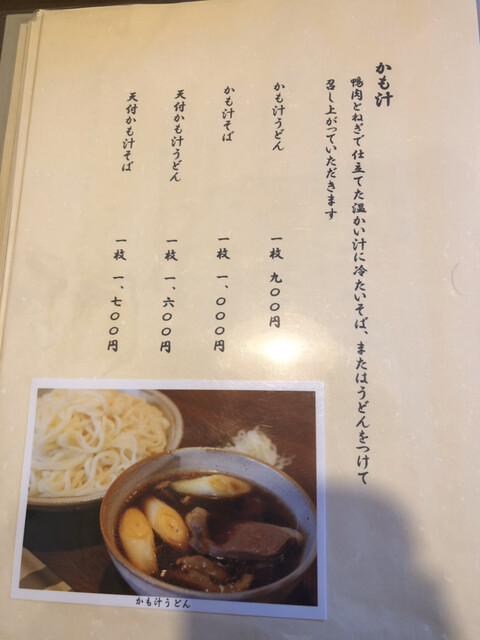 かも汁
鴨肉とねぎで仕立てた温かい汁に冷たいそば、またはうどんをつけて
召し上がっていただきます
かも汁うどん 一枚 九〇〇円
かも汁そば 一枚 一、〇〇〇円
天付かも汁うどん 一枚 一、六〇〇円
天付かも汁そば 一枚 一、七〇〇円
かも汁うどん